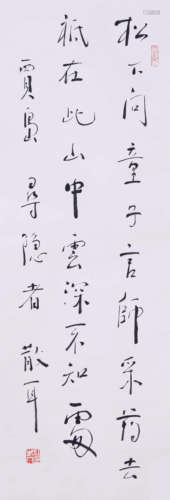 松下问童子言師采药去
祇在此山中雲深不知處
賈島 尋隐者 散耳